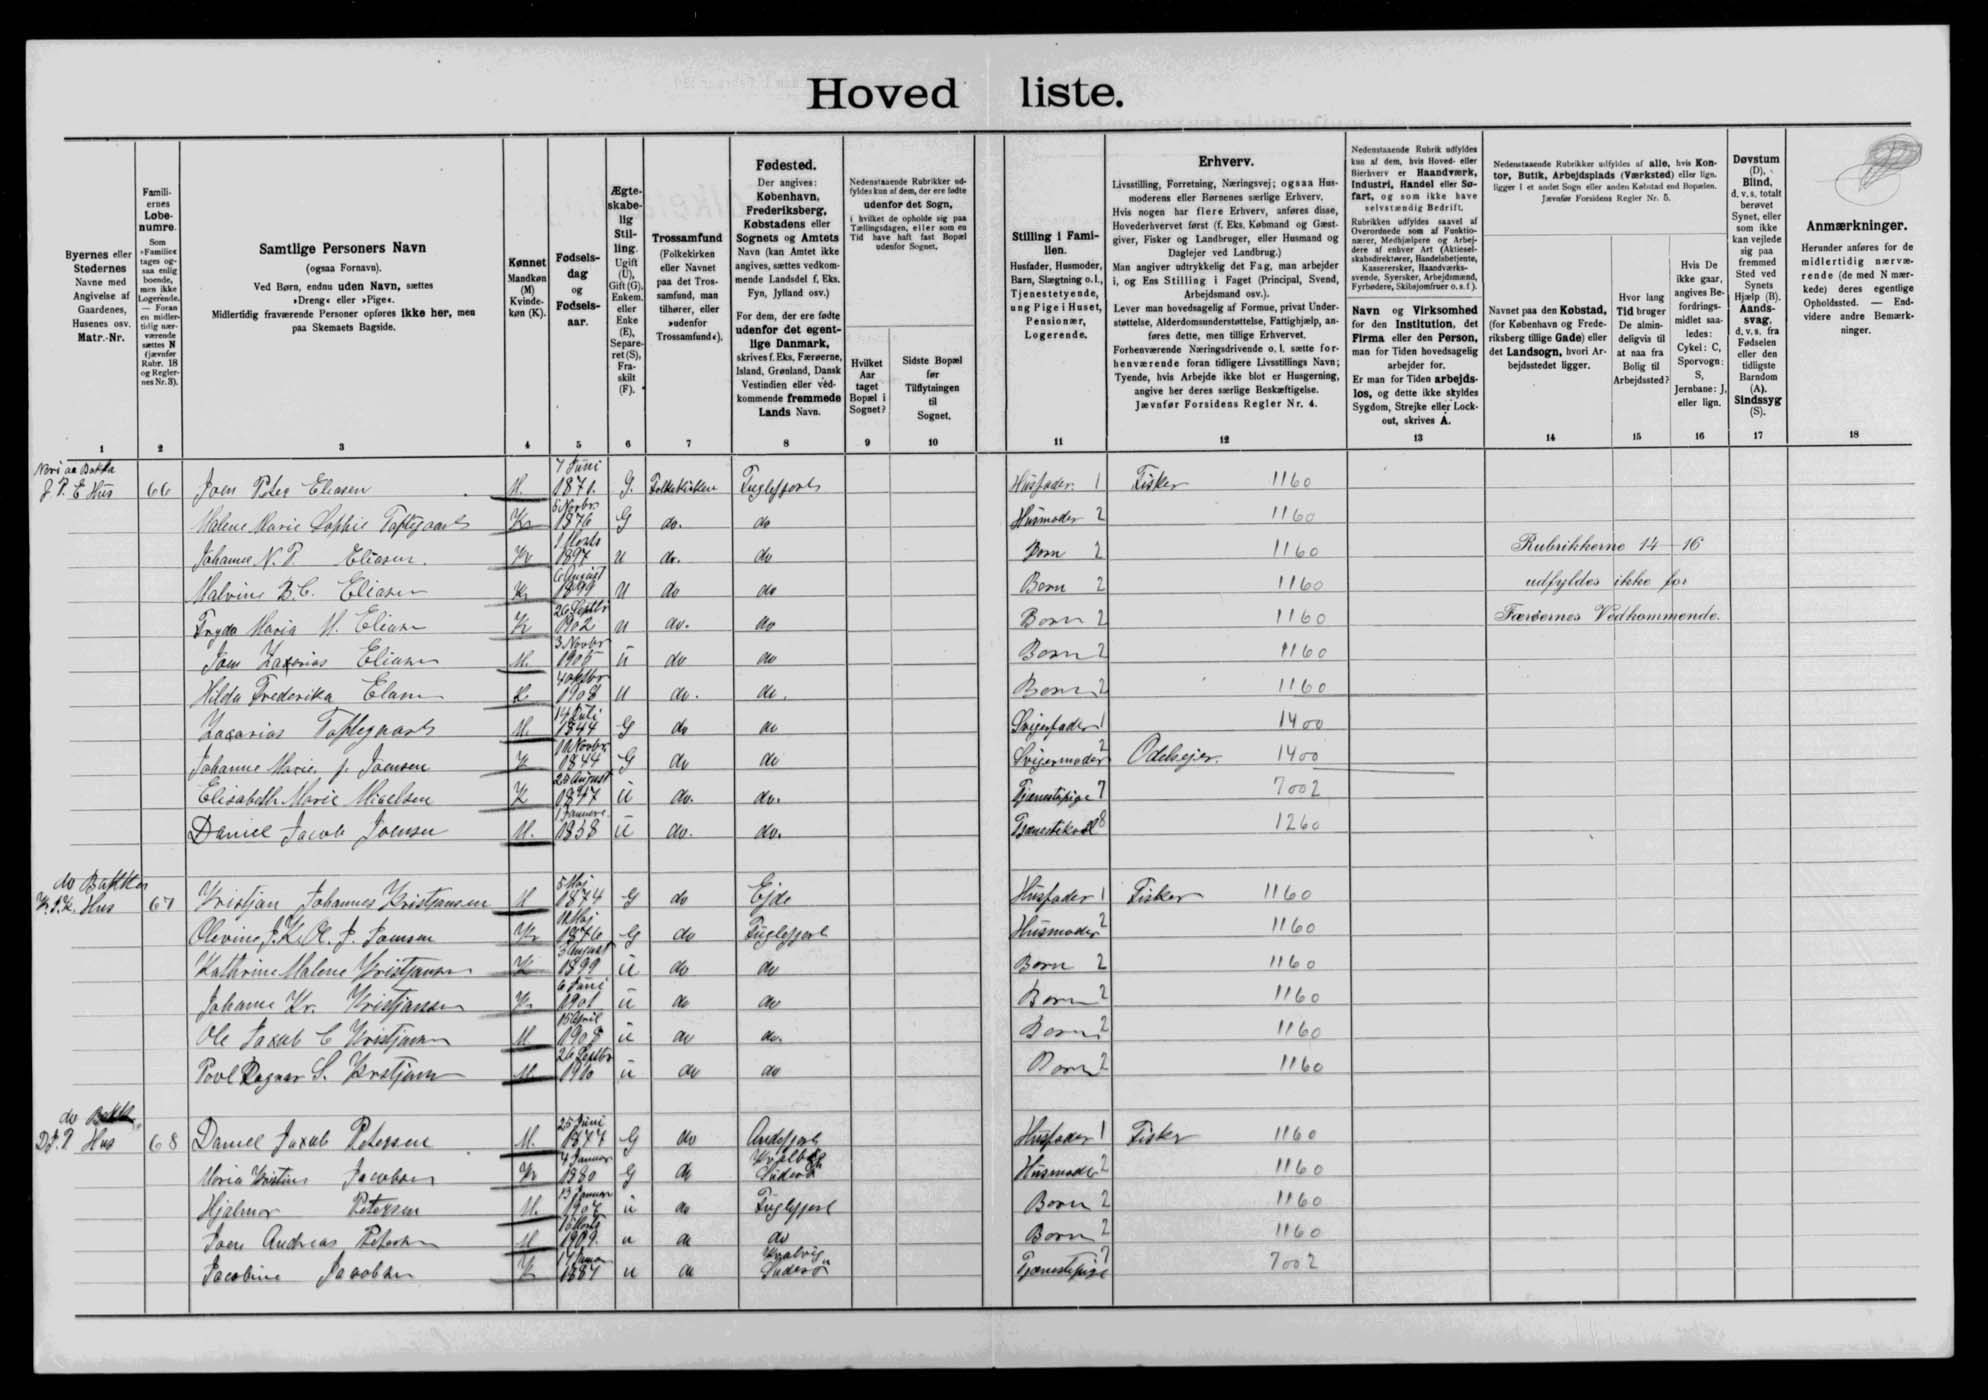 Hoved liste.
Byernes eller
Stedernes
Navne med
Angivelse af
Gaardenes,
Husenes osv.
Matr.-Nr.
Famili-
ernes
Løbe-
numre.
Som
»Familie«
tages og-
saa enlig
boende,
men ikke
Logerende.
— Foran
en midler-
tidig nær-
værende
sættes N
(jævnfør
Rubr. 18
og Regler-
nes Nr. 3).
Samtlige Personers Navn
(ogsaa Fornavn).
Ved Børn, endnu uden Navn, sættes
»Dreng« eller »Pige«.
Midlertidig fraværende Personer opføres ikke her, men
paa Skemaets Bagside.
Kønnet
Mandkøn
(M)
Kvinde-
køn (K).
Fødsels-
dag
og
Fødsels-
aar.
Ægte-
skabe-
lig
Stil-
ling.
Ugift
(U),
Gift (G),
Enkem.
eller
Enke
(E),
Separe-
ret (S),
Fra-
skilt
(F).
Trossamfund
(Folkekirken
eller Navnet
paa det Tros-
samfund, man
tilhører, eller
»udenfor
Trossamfund«).
Fødested.
Der angives:
København,
Frederiksberg,
Købstadens eller
Sognets og Amtets
Navn (kan Amtet ikke
angives, sættes vedkom-
mende Landsdel f. Eks.
Fyn, Jylland osv.)
For dem, der ere fødte
udenfor det egent-
lige Danmark,
skrives f. Eks. Færøerne,
Island, Grønland, Dansk
Vestindien eller ved-
kommende fremmede
Lands Navn.
Nedenstaaende Rubrikker ud-
fyldes kun af dem, der ere fødte
udenfor det Sogn,
i hvilket de opholde sig paa
Tællingsdagen, eller som en
Tid have haft fast Bopæl
udenfor Sognet.
Hvilket
Aar
taget
Bopæl i
Sognet?
Sidste Bopæl
før
Tilflytningen
til
Sognet.
Stilling i Fami-
lien.
Husfader, Husmoder,
Barn, Slægtning o. l.,
Tjenestetyende,
ung Pige i Huset,
Pensionær,
Logerende.
Erhverv.
Livsstilling, Forretning, Næringsvej; ogsaa Hus-
moderens eller Børnenes særlige Erhverv.
Hvis nogen har flere Erhverv, anføres disse,
Hovederhvervet først (f. Eks. Købmand og Gæst-
giver, Fisker og Landbruger, eller Husmand og
Daglejer ved Landbrug.)
Man angiver udtrykkelig det Fag, man arbejder
i, og Ens Stilling i Faget (Principal, Svend,
Arbejdsmand osv.).
Lever man hovedsagelig af Formue, privat Under-
støttelse, Alderdomsunderstøttelse, Fattighjælp, an-
føres dette, men tillige Erhvervet.
Forhenværende Næringsdrivende o. l. sætte for-
henværende foran tidligere Livsstillings Navn;
Tyende, hvis Arbejde ikke blot er Husgerning,
angive her deres særlige Beskæftigelse.
Jævnfør Forsidens Regler Nr. 4.
Nedenstaaende Rubrik udfyldes
kun af dem, hvis Hoved- eller
Bierhverv er Haandværk,
Industri, Handel eller Sø-
fart, og som ikke have
selvstændig Bedrift.
Rubrikken udfyldes saavel af
Overordnede som af Funktio-
nærer, Medhjælpere og Arbej-
dere af enhver Art (Aktiesel-
skabsdirektører, Handelsbetjente,
Kasserersker, Haandværks-
svende, Syersker, Arbejdsmænd,
Fyrbødere, Skibsjomfruer o. s. f.).
Navn og Virksomhed
for den Institution, det
Firma eller den Person,
man for Tiden hovedsagelig
arbejder for.
Er man for Tiden arbejds-
løs, og dette ikke skyldes
Sygdom, Strejke eller Lock-
out, skrives A.
Nedenstaaende Rubrikker udfyldes af alle, hvis Kon-
tor, Butik, Arbejdsplads (Værksted) eller lign.
ligger i et andet Sogn eller anden Købstad end Bopælen.
Jævnfør Forsidens Regler Nr. 5.
Navnet paa den Købstad,
(for København og Frede-
riksberg tillige Gade) eller
det Landsogn, hvori Ar-
bejdsstedet ligger.
Hvor lang
Tid bruger
De almin-
deligvis til
at naa fra
Bolig til
Arbejdssted?
Hvis De
ikke gaar,
angives Be-
fordrings-
midlet saa-
ledes:
Cykel: C,
Sporvogn:
S,
Jernbane: J,
eller lign.
Døvstum
(D),
Blind,
d. v. s. totalt
berøvet
Synet, eller
som ikke
kan vejlede
sig paa
fremmed
Sted ved
Synets
Hjælp (B).
Aands-
svag,
d. v. s. fra
Fødselen
eller den
tidligste
Barndom
(A).
Sindssyg
(S).
Anmærkninger.
Herunder anføres for de
midlertidig nærvæ-
rende (de med N mær-
kede) deres egentlige
Opholdssted. — End-
videre andre Bemærk-
ninger.
1 2 3 4 5 6 7 8 9 10 11 12 13 14 15 16 17 18
7 Juni
J. P. E Hus 66 Joen Peter Eliasen M. 1871. G. Folkekirken Fuglefjord Husfader. 1 Fisker 1160
Malene Marie Sophie 1876 G do. do Husmoder 2 1160
Johanne N. P. Eliasen. 1897 U do. do Born 2 1160
Rubrikkerne 14-16
6 August
Malvine B. C. Eliasen 1899 U do do Born 2 1160
udfyldes ikke for
26 Septbr
Maria M. Eliasen K 1902 U do. do Born 2 1160
Færøernes Vedkommende.
3 Novbr
Joen Zaxarias Eliasen M. U do do Born 2 1160
Hilda Frederika K. 1908 U do. do. Born 2 1160
14 Juli
Zacarias M. 1844 G do do Svigerfader 1 1400
Johanne Marie f. Joensen K 1844 G do do Svigermoder 2 Odelsejer. 1400
25 August
Elisabeth Marie K U do. do. Tjenestepige 7 7002
1 Januar
Daniel Jacob Joensen M. 1858 U do. do. Tjenestekarl 8 1260
do
5 Maj
Hus 67 Kristjan Johannes Kristjansen M 1874 G do Ejde Husfader 1 Fisker 1160
Maj
1876 G do Fuglefjord Husmoder 2 1160
3 August
Kathrine Malene Kristjansen K 1899 U do do Born 2 1160
6 Juni
Johanne Kr. Kristjansen 1901 U do do Born 2 1160
15 April
Ole Jaxub C Kristjansen M 1908 U do do. Born 2 1160
26 Septbr
Poul Ragnar S. M. 1910 U do do Born 2 1160
do
25 Juni
D. J. P Hus 68 Daniel Jaxub Petersen M. 1877 G do Andefjord Husfader 1 Fisker 1160
4 Januar
Maria Kristine Jacobsen 1880 G do Suderø Husmoder 2 1160
13 Januar
Hjalmar Petersen M. 1907 U do Fuglefjord Born 2 1160
Joen Andreas Petersen M 1909. U do do Born 2 1160
Kvalvig
Jacobine Jacobsen K 1887 U do Suderø Tjenestepige 7 7002